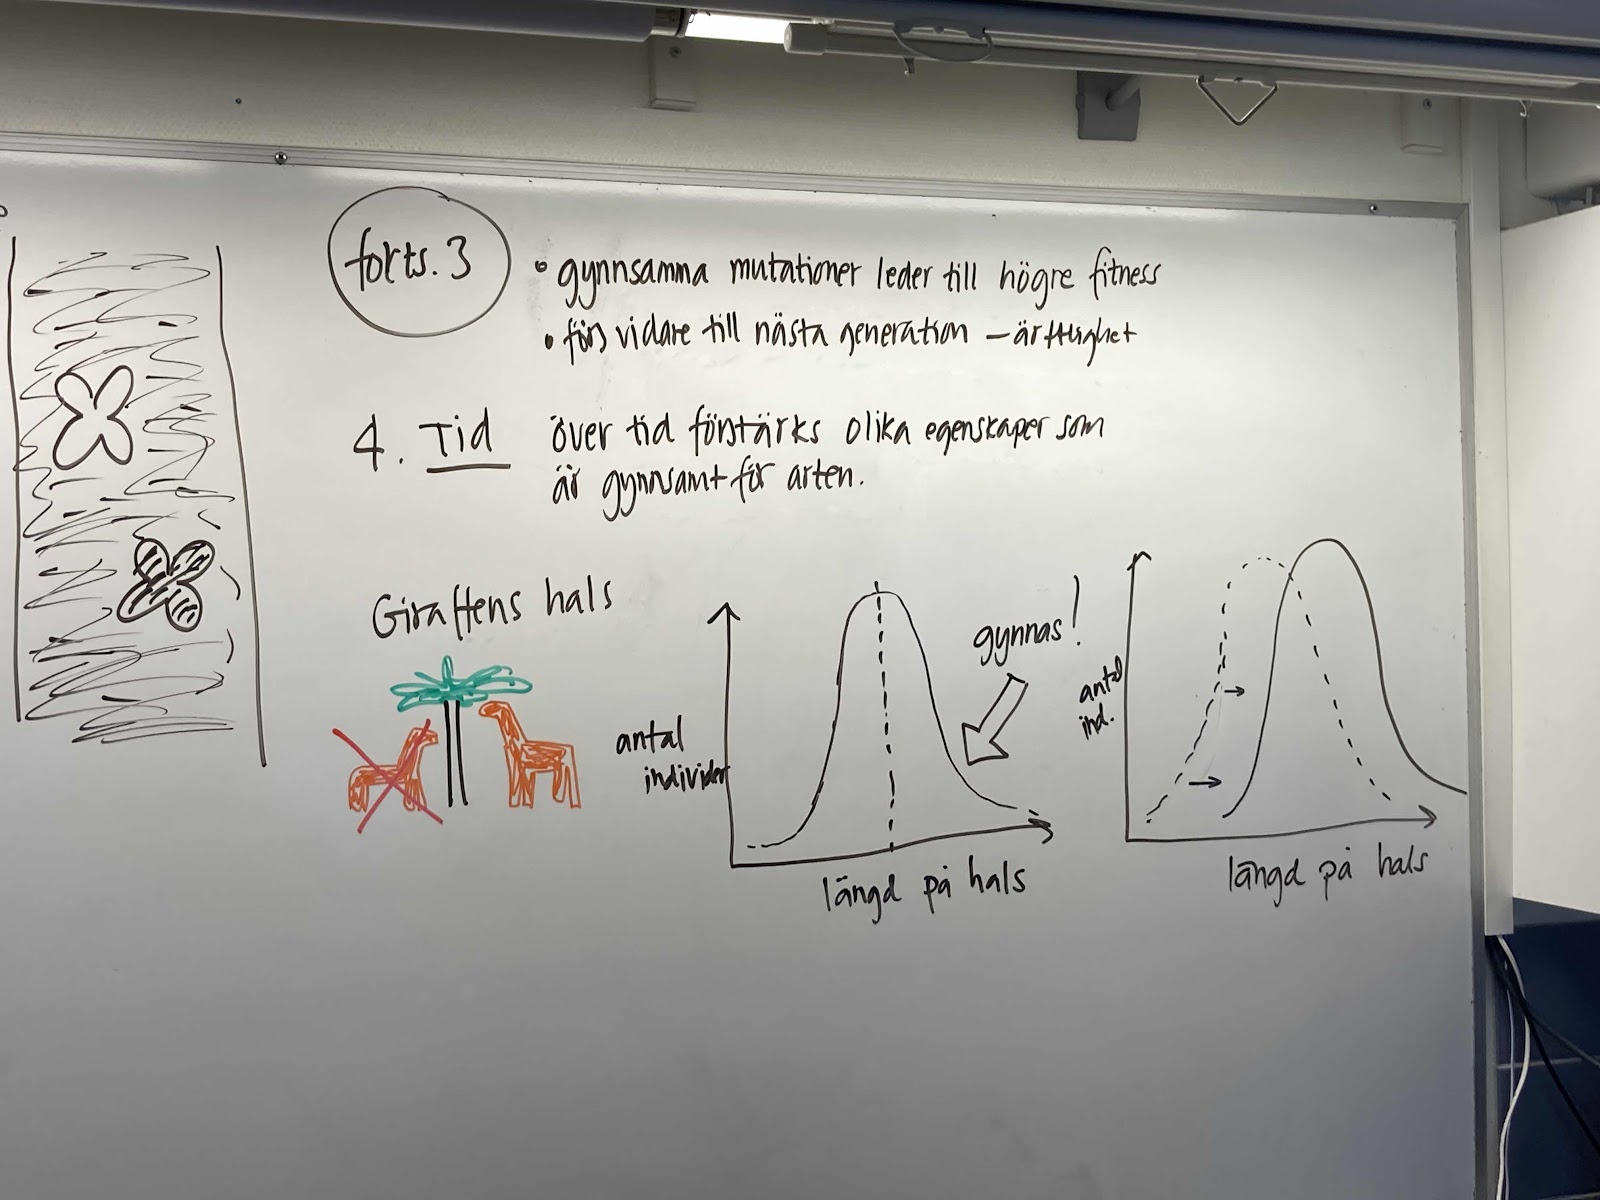 forts. 3
• gynnsamma mutationer leder till högre fitness
• förs vidare till nästa generation – ärftlighet
4. Tid
över tid förstärks olika egenskaper som
är gynnsamt för arten.
Giraffens hals
antal
individer
längd på hals
gynnas!
antal
ind.
längd på hals